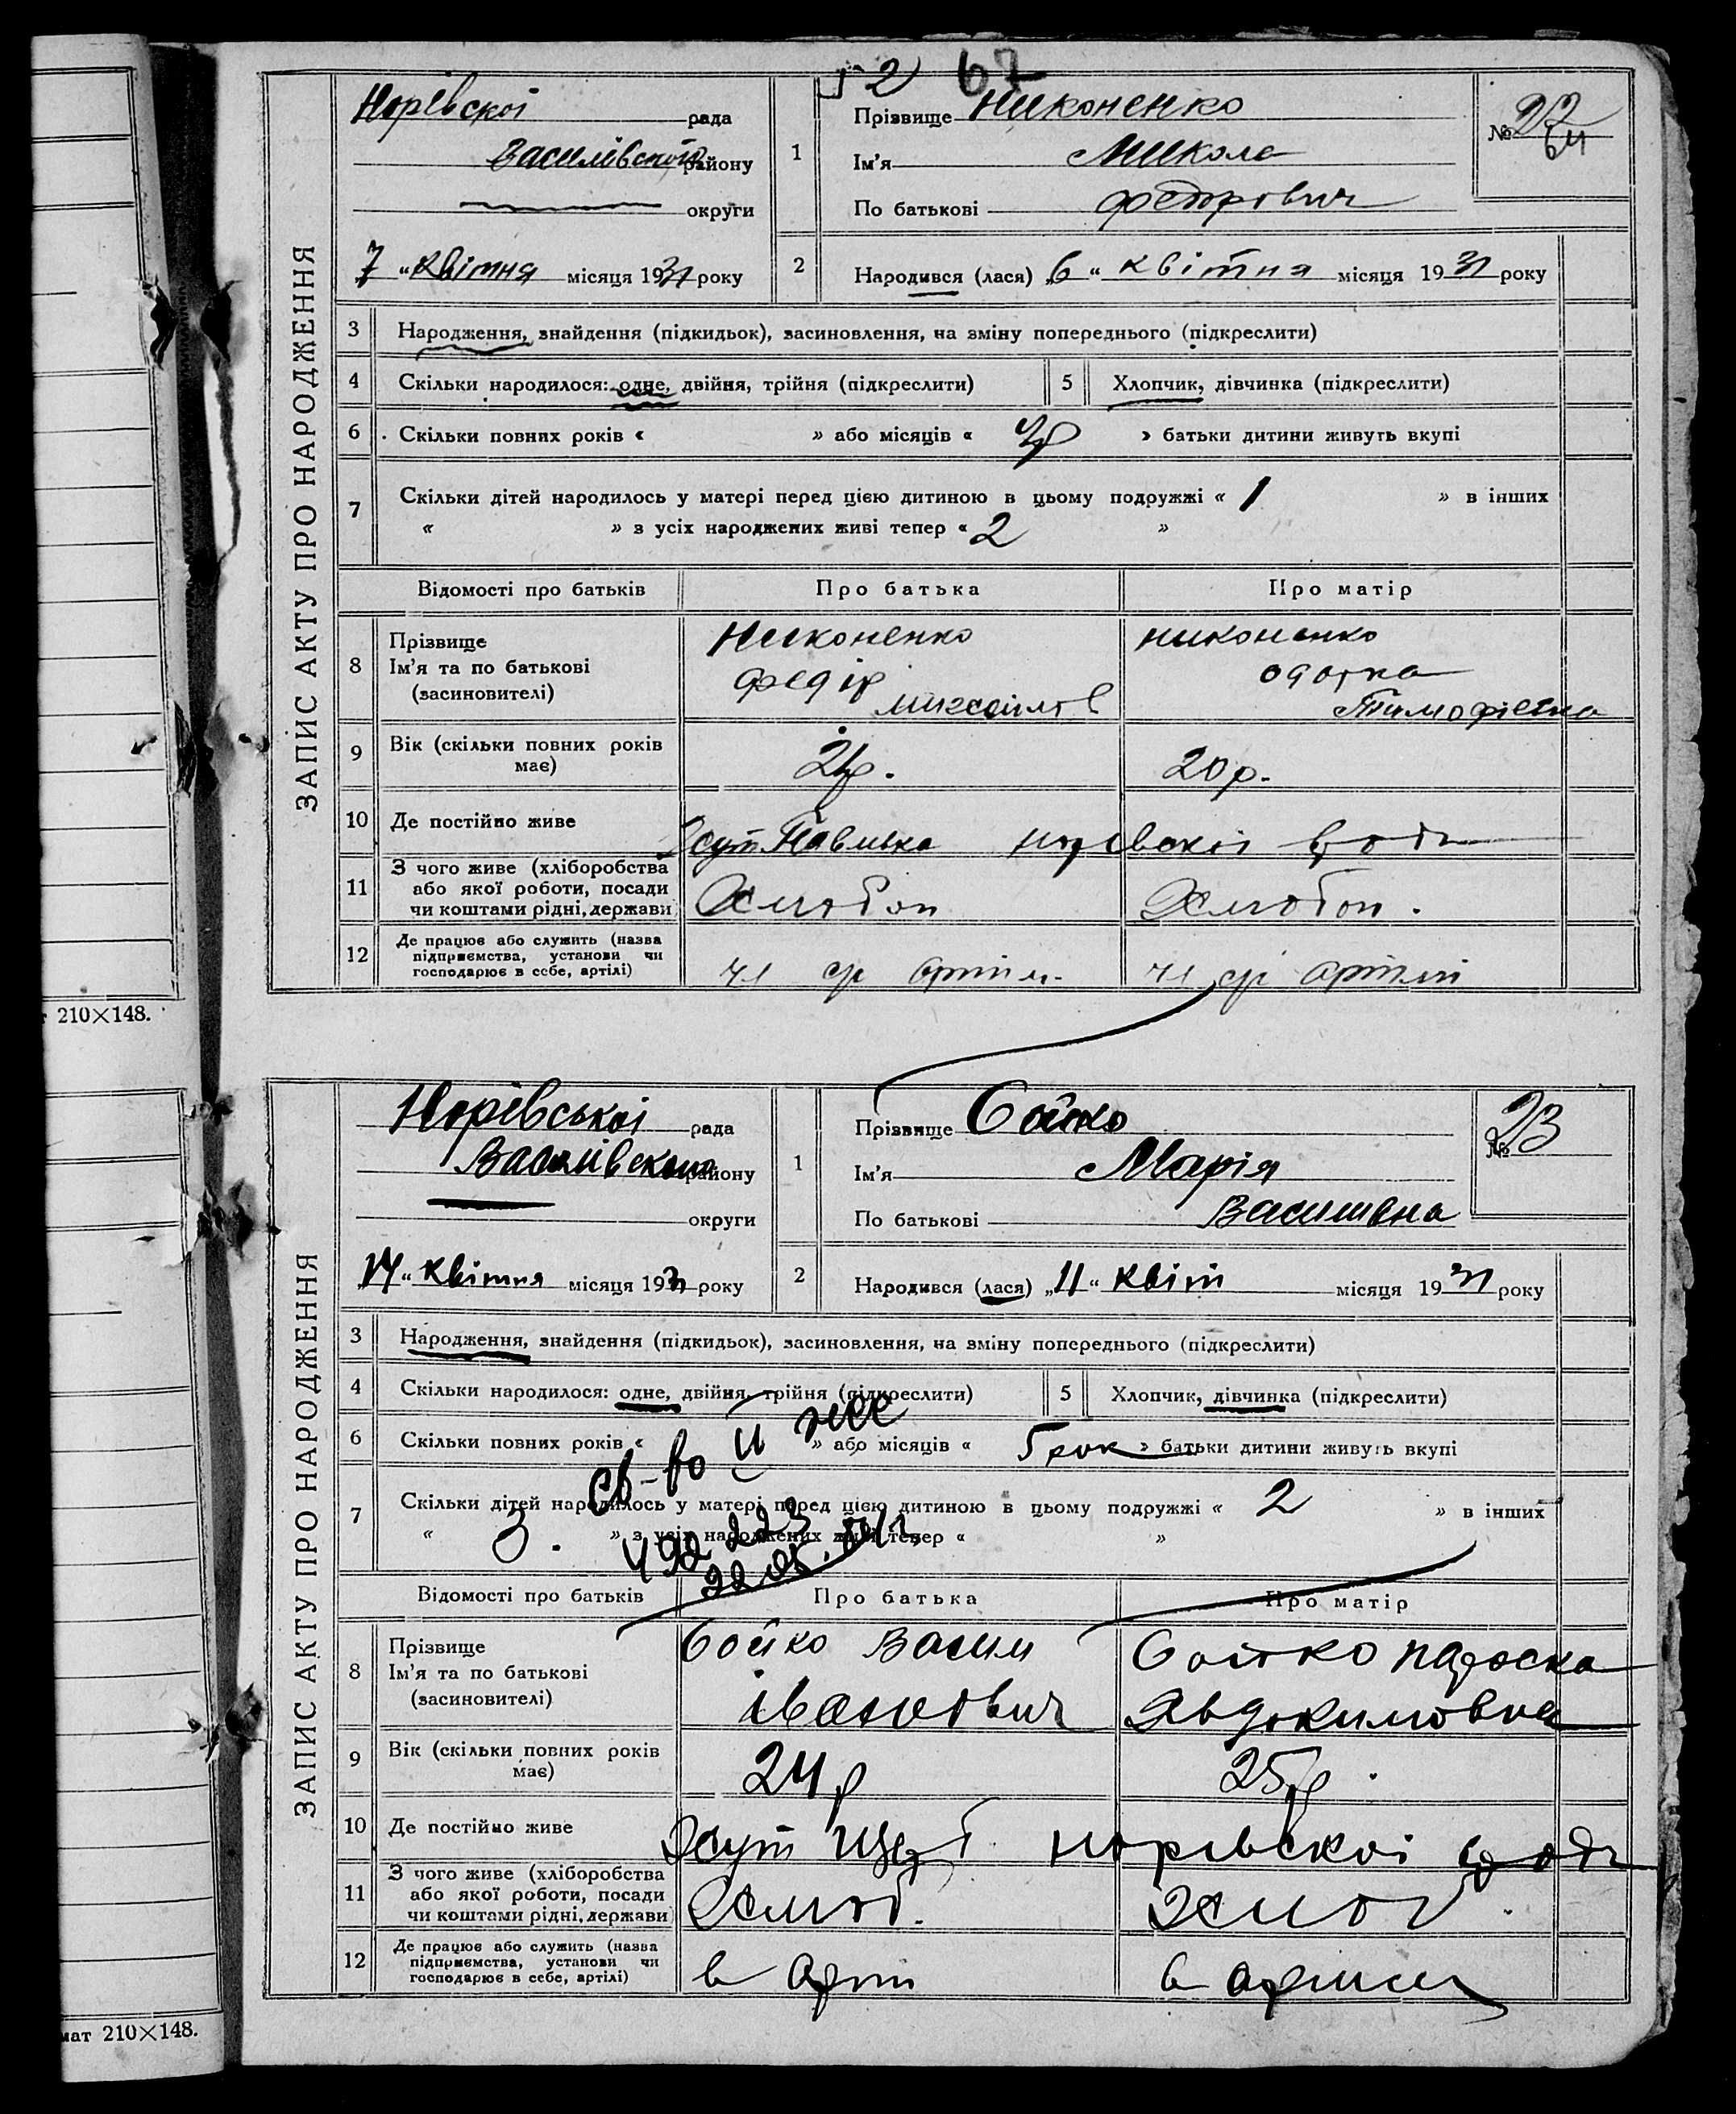 52 67
ЗАПИС АКТУ ПРО НАРОДЖЕННЯ
Норівскої рада
Василівського району
округи
7 „ квітня місяця 1931 року
1 Прізвище Никоненко
Ім'я Микола
По батькові Федорович
№ 22
64
2 Народився (лася) „6 “ квітня місяця 1931 року
3 Народження, знайдення (підкидьок), засиновлення, на зміну попереднього (підкреслити)
4 Скільки народилося: одне, двійня, трійня (підкреслити) 5 Хлопчик, дівчинка (підкреслити)
6 Скільки повних років « » або місяців « » батьки дитини живуть вкупі
7 Скільки дітей народилось у матері перед цією дитиною в цьому подружжі « 1 » в інших
« » з усіх народжених живі тепер « 2 »
Відомості про батьків Про батька Про матір
8 Прізвище Никоненко Никоненко
Ім'я та по батькові Федір Одарка
(засиновителі) Михайлов Тимофіевна
9 Вік (скільки повних років має) 20 р.
10 Де постійно живе Хут Павливка Норевскої
11 З чого живе (хліборобства або якої роботи, посади чи коштами рідні, держави Хлібоп Хлібоп.
12 Де працює або служить (назва підприємства, установи чи господарює в себе, артілі) артіл. артілі
210×148.
ЗАПИС АКТУ ПРО НАРОДЖЕННЯ
Норівської рада
Василівского району
округи
14 “ квітня місяця 1931 року
1 Прізвище Бойко
Ім'я Марія
По батькові Василивна
№ 23
2 Народився (лася) „11 “ квіт місяця 1931 року
3 Народження, знайдення (підкидьок), засиновлення, на зміну попереднього (підкреслити)
4 Скільки народилося: одне, двійня, трійня (підкреслити) 5 Хлопчик, дівчинка (підкреслити)
6 Скільки повних років « » або місяців « 5 рок » батьки дитини живуть вкупі
св-во
7 Скільки дітей народилось у матері перед цією дитиною в цьому подружжі « 2 » в інших
« 3. » з усіх народжених живі тепер « »
492223
Відомості про батьків Про батька Про матір
8 Прізвище Бойко Васил Бойко Параска
Ім'я та по батькові Іванович Явдокимовна
(засиновителі)
9 Вік (скільки повних років має) 24 р 25 р.
10 Де постійно живе Хут Норевскої
11 З чого живе (хліборобства або якої роботи, посади чи коштами рідні, держави Хліб. Хліб.
12 Де працює або служить (назва підприємства, установи чи господарює в себе, артілі) в арт в артил
мат 210×148.